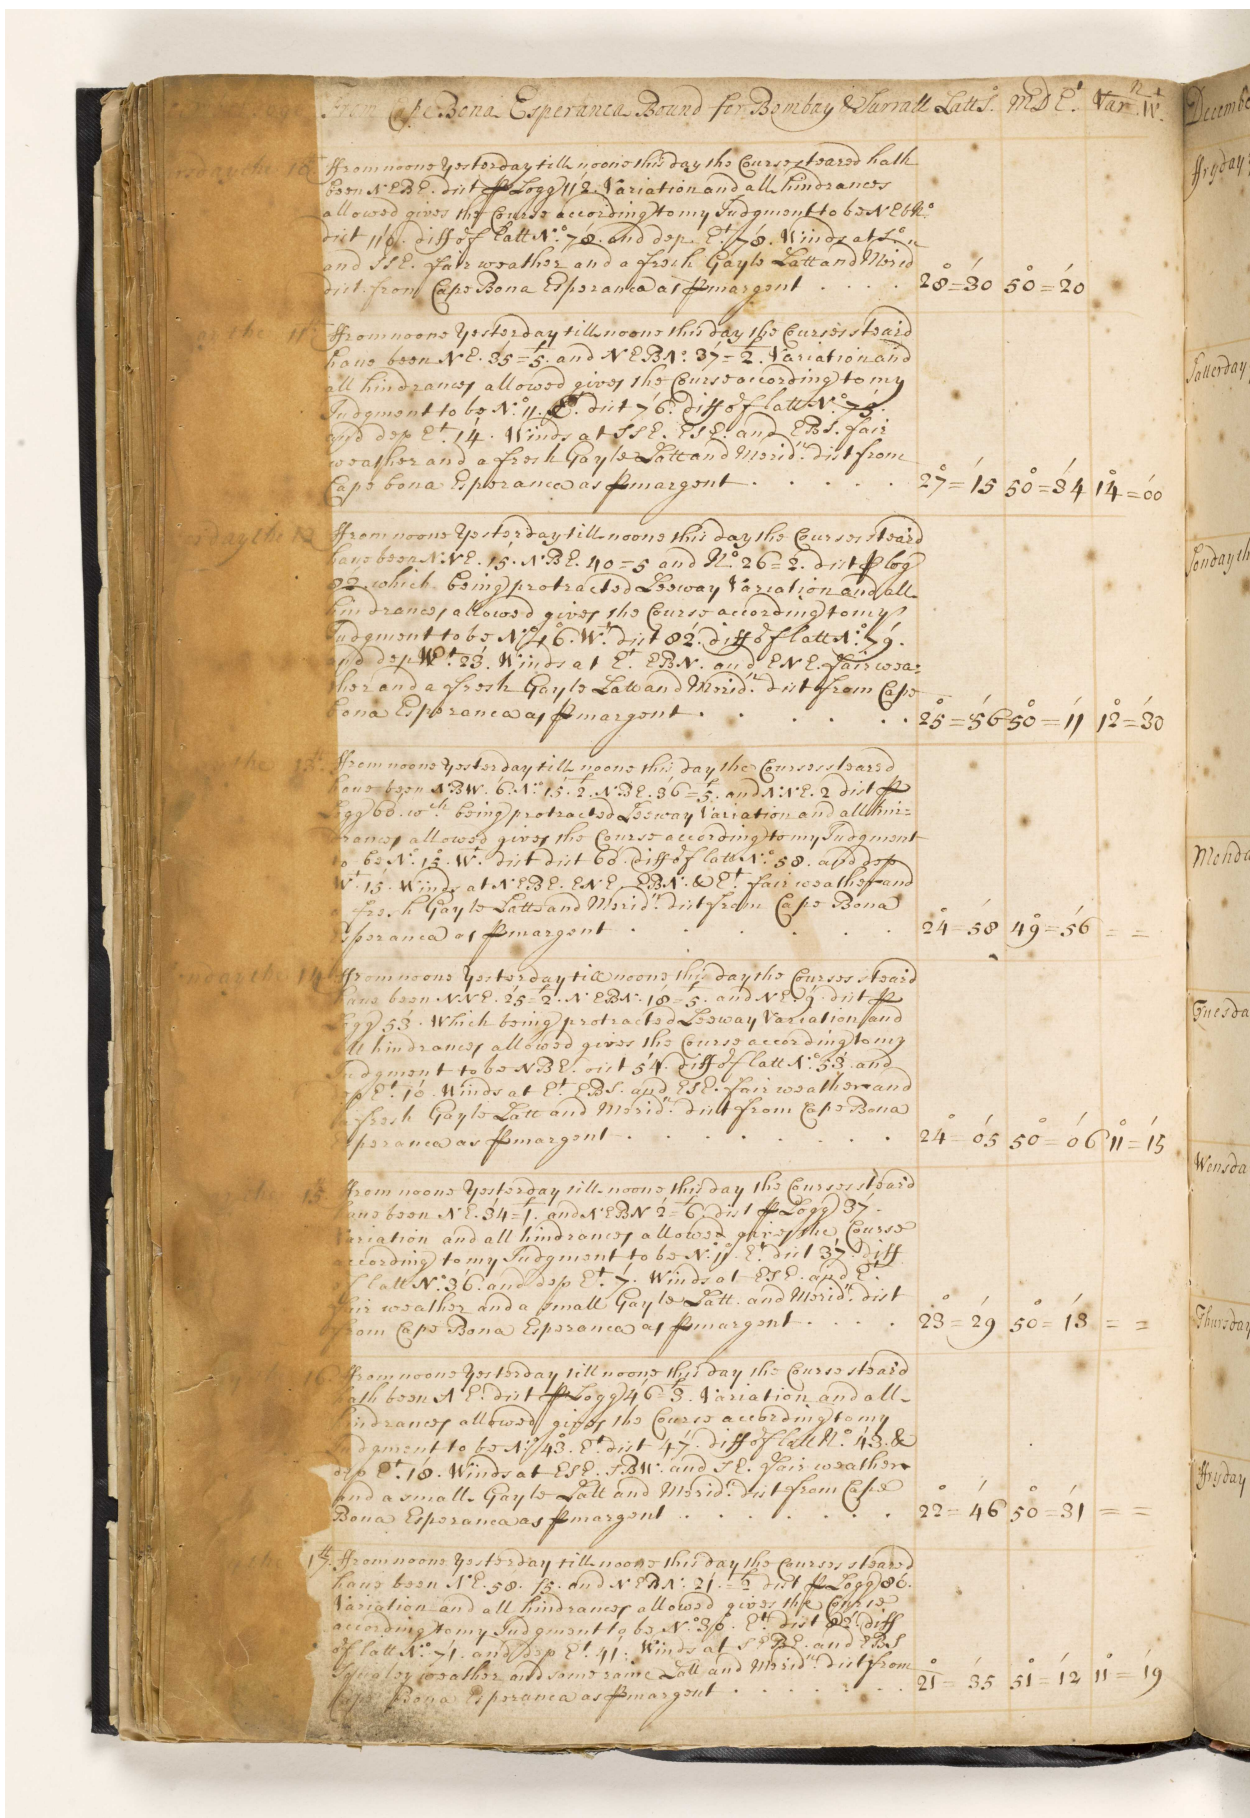 From Cape Bona Esperanca Bound for Bombay & Surratt Latt S.o M:D E.t Var.n W.t
10th ffrom noone Yesterday till noone this day the Course steared hath
been NEBE. dist p Logg 112. Variation and all hindrances
allowed gives the Course according to my Judgment to be NEb N.o
dist 110. diff of Latt N.o 78. and dep E.t 78. Winds at S.o
and SSE. fair weather and a fresh Gayle Latt and Merid
dist from Cape Bona Esperanca as p margent . . . . 28=30 50=20
11th ffrom noone Yesterday till noone this day the Courses steard
have been NE. 35=5. and NEBN.o 37=2. Variation and
all hindrances allowed gives the Course according to my
Judgment to be N.o 11. E.t dist 76. diff of latt N.o 75.
and dep E.t 14. Winds at SSE. ESE. and EBS. fair
weather and a fresh Gayle Latt and Merid.n dist from
Cape bona Esperanca as p margent . . . . . 27=15 50=34 14=00
12 ffrom noone Yesterday till noone this day the Courses steard
have been NNE. 15. NBE. 40=5 and N.o 26=2. dist p log
82 which being protracted Leeway Variation and all
hindrances allowed gives the Course according to my
Judgment to be N.o 16. W.t dist 82. diff of latt N.o 79.
and dep W.t 23. Winds at E.t EBN. and ENE. fair wea=
ther and a fresh Gayle Latt and Merid.n dist from Cape
bona Esperanca as p margent . . . . . . 25=56 50=11 12=30
13th ffrom noone Yesterday till noone this day the Courses steared
have been NBW. 6. N.o 15.2. NBE. 36=5. and NNE. 2 dist p
Logg 60. w.ch being protracted Leeway Variation and all hin=
drances allowed gives the Course according to my Judgment
to be N.o 15. W.t dist dist 60. diff of latt N.o 58. and dep
W.t 15. Winds at NEBE. ENE. EBN. & E.t fair weather and
a fresh Gayle Latt and Merid.n dist from Cape Bona
Esperanca as p margent . . . . . . 24=58 49=56 = =
14 ffrom noone Yesterday till noone this day the Courses steard
have been NNE. 25=2. NEBN. 18=5. and NE. 9. dist p
Logg 53. Which being protracted Leeway Variation and
all hindrances allowed gives the Course according to my
Judgment to be NBE. dist 54. diff of latt N.o 53. and
dep E.t 10. Winds at E.t EBS. and ESE. fair weather and
a fresh Gayle Latt and Merid.n dist from Cape Bona
Esperanca as p margent . . . . . . . 24=05 50=06 11=15
15 ffrom noone Yesterday till noone this day the Courses steard
have been NE. 34=1. and NEBN 2=6. dist p Logg 37.
Variation and all hindrances allowed gives the Course
according to my Judgment to be N.o 11. E.t dist 37. diff
of latt N.o 36. and dep E.t 7. Winds at ESE. and E.t
fair weather and a small Gayle Latt. and Merid.n dist
from Cape Bona Esperanca as p margent . . . . 23=29 50=13 = =
16 ffrom noone Yesterday till noone this day the Course steard
hath been NE. dist p Logg 46=3. Variation and all
hindrances allowed gives the Course according to my
Judgment to be N.o 43. E.t dist 47. diff of latt N.o 43. &
dep E.t 18. Winds at ESE. SBW. and SE. fair weather
and a small Gayle Latt and Merid.n dist from Cape
Bona Esperanca as p margent . . . . . . . 22=46 50=31 = =
ffrom noone Yesterday till noone this day the Courses steared
have been NE. 58. 15. and NEBN. 21.=2 dist p Logg 86.
Variation and all hindrances allowed gives the Course
according to my Judgment to be N.o 30. E.t dist 82. diff
of latt N.o 71. and dep E.t 41: Winds at SEBE. and EBS
Squaley weather and some raine Latt and Merid.n dist from
Cape Bona Esperanca as p margent . . . . . . . 21=35 51=12 11=19
Decembe
ffryday
Satterday
Sonday th
Monda
Tuesda
Wensda
Thursday
ffryday